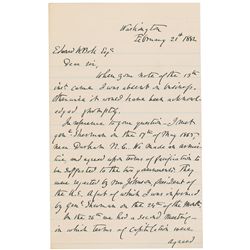 Washington
February 21st 1882
Edward W Bok Esq
Dear sir,
When your note of the 13th
inst. came I was absent in
otherwise it would have been acknowl-
edged promptly.
In reference to your question - I met
Genl Sherman on the 17th of May 1865
near Durham N.C. We made an armis-
tice, and agreed upon terms of pacification to
be supported to the two governments. They
were rejected by Mr Johnson, President of
the U.S. A fact of which I was informed
by Genl Sherman on the 24th of the Month.
On the 26th we had a second meeting -
in which terms of capitulation were
agreed